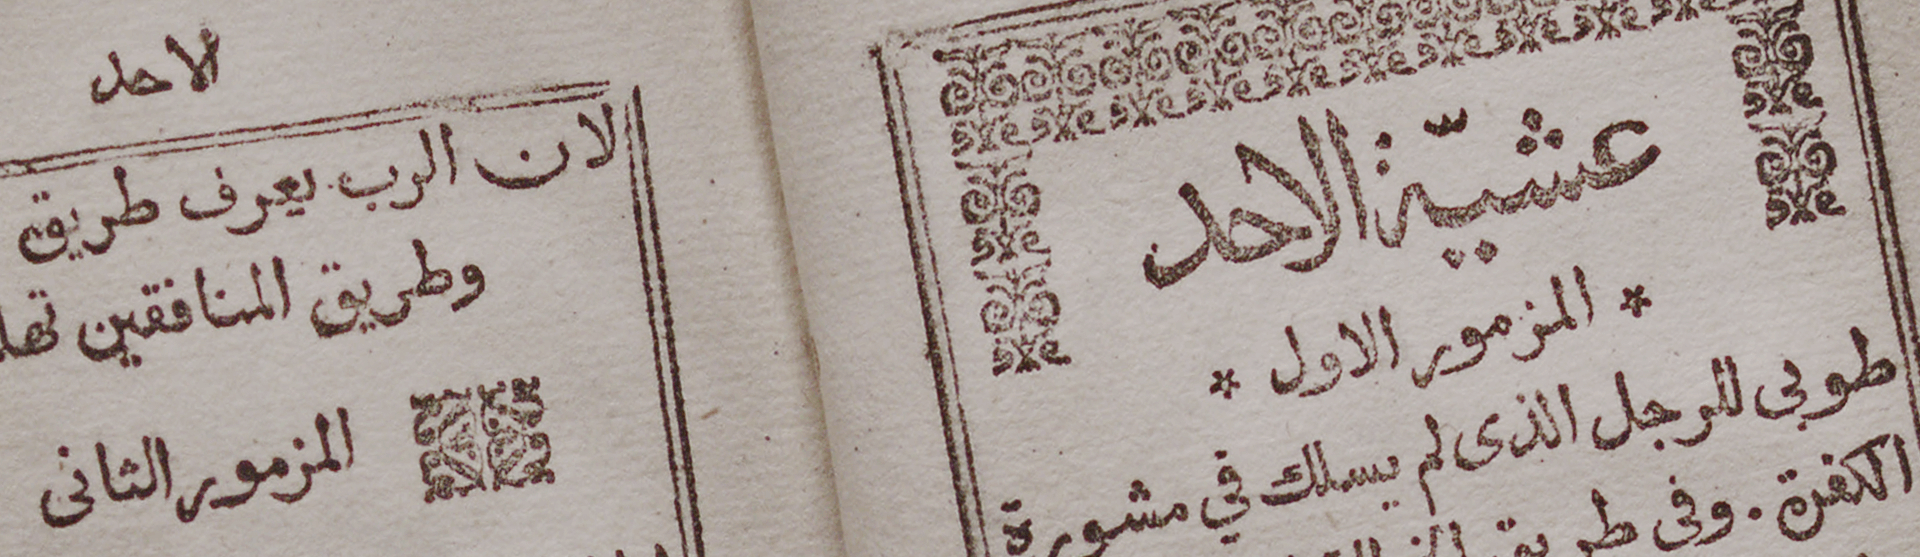 عشيّة الاحد
* المزمور الاول *
طوبى للرجل الذى لم يسلك في مشورة
الكفرة . وفى طريق
الاحد
لان الرب يعرف طريق
وطريق المنافقين
المزمور الثانى